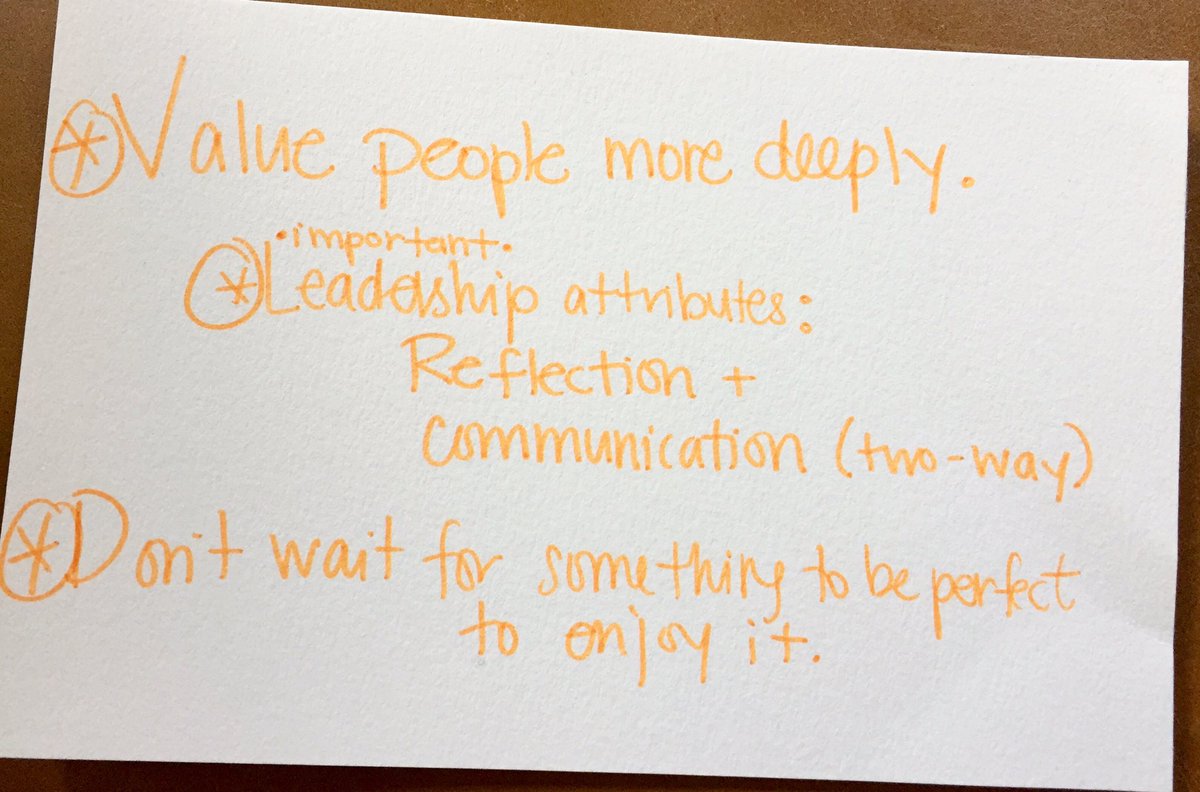 * Value people more deeply.
•important•
* Leadership attributes:
Reflection +
communication (two-way)
* Don't wait for something to be perfect
to enjoy it.